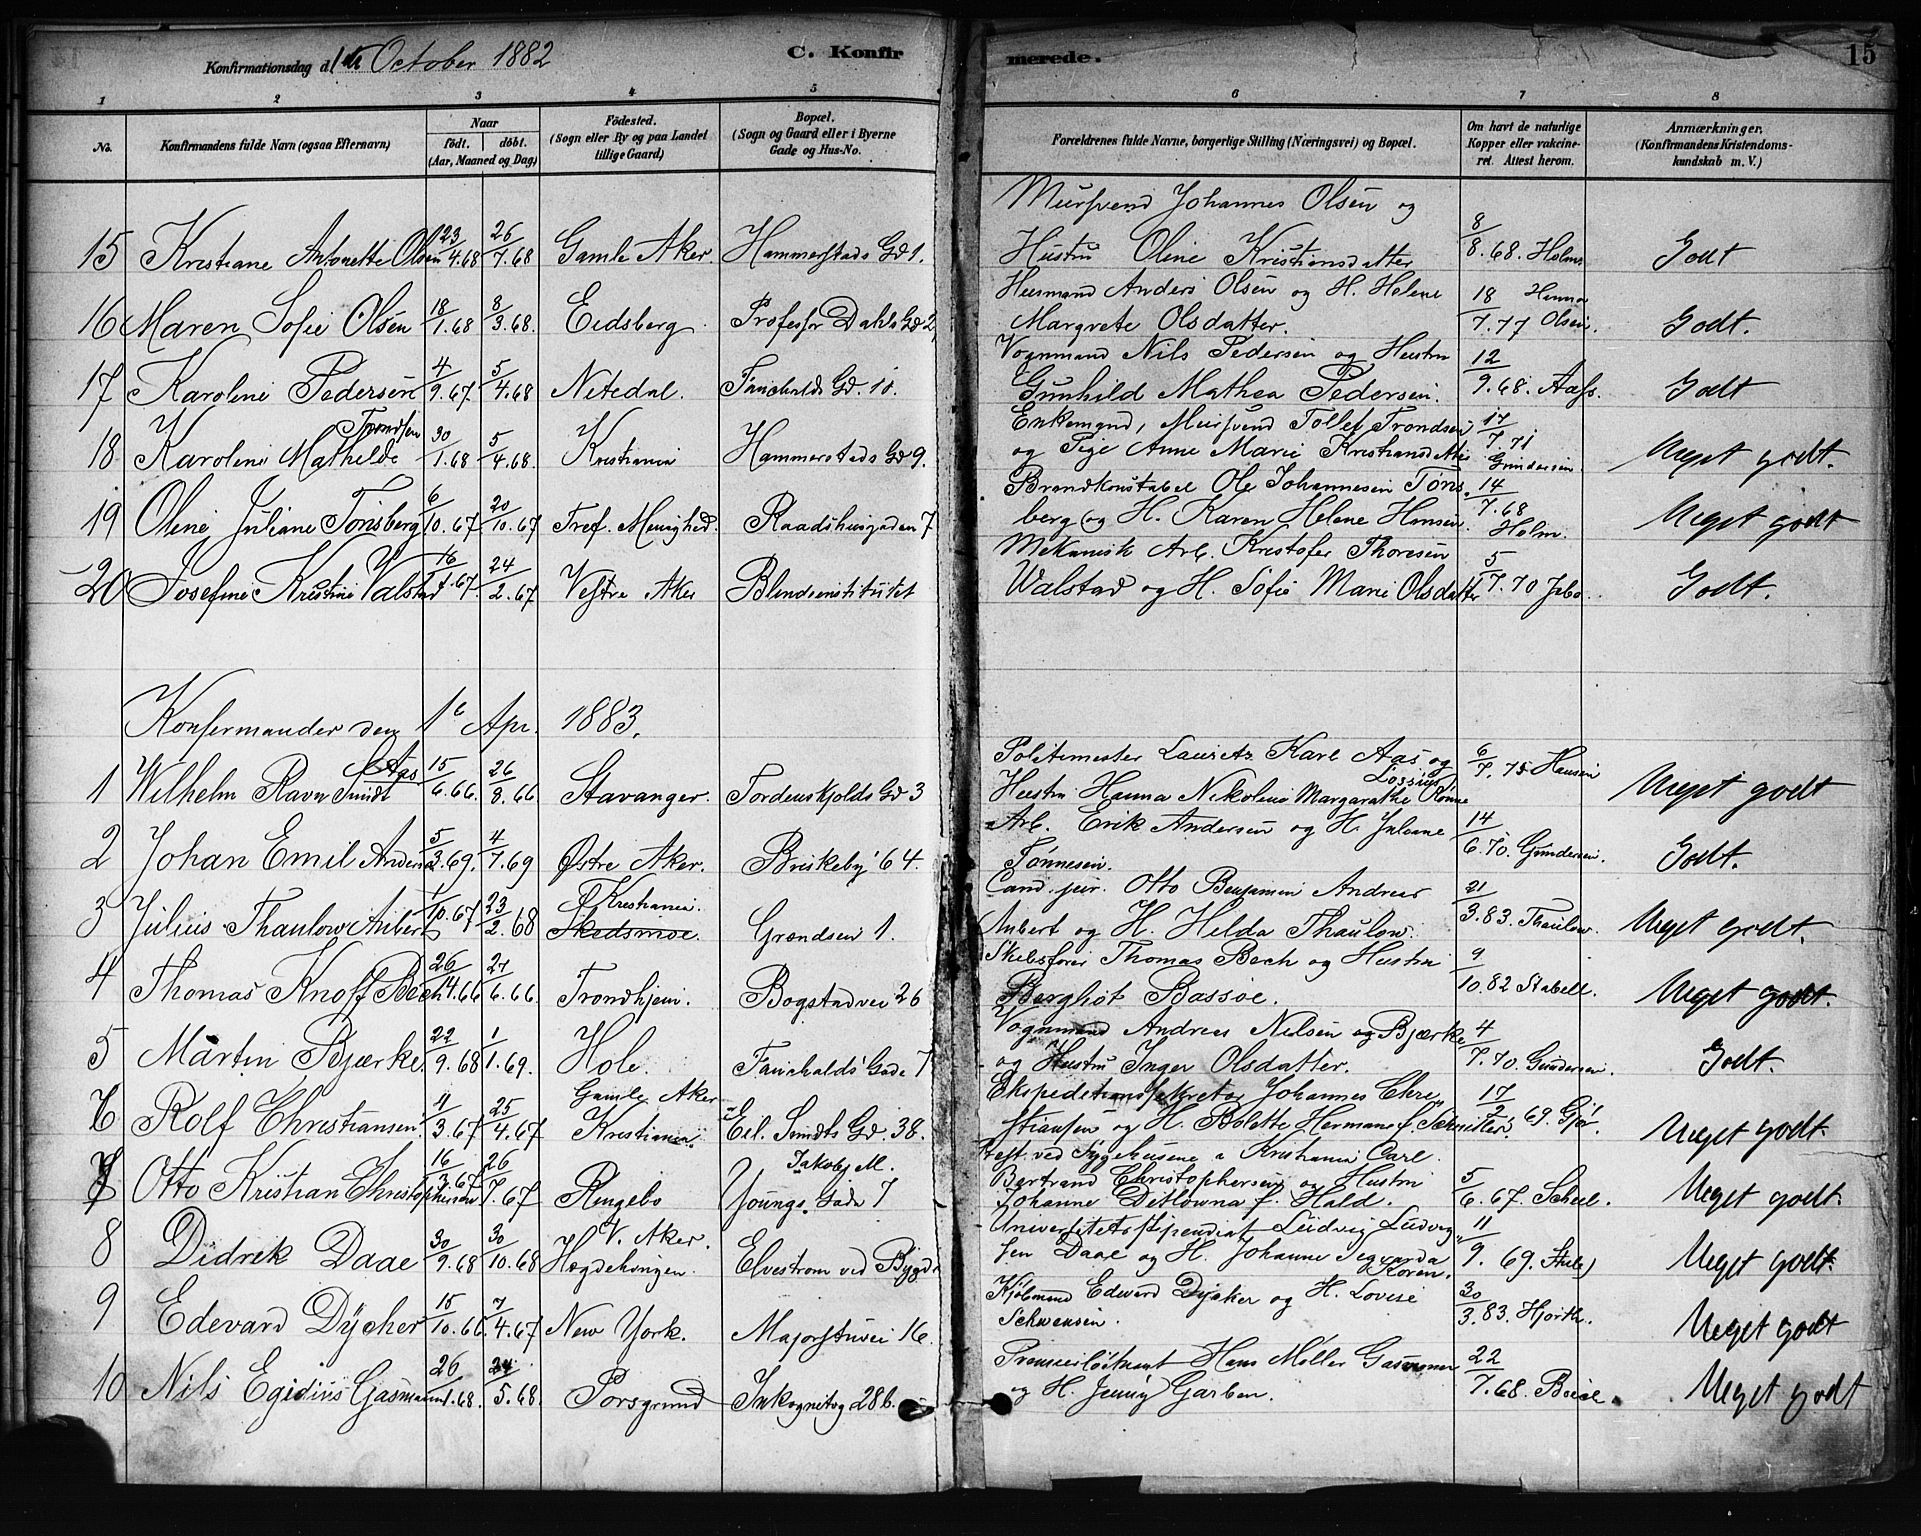 Konfirmationsdag d. 1ste October 1882
C. Konfir
merede.
15
1 2 3 4 5 6 7 8
No.
Konfirmandens fulde Navn (ogsaa Efternavn)
Naar
født. døbt.
(Aar, Maaned og Dag)
Fødested.
(Sogn eller By og paa Landet
tillige Gaard)
Bopæl.
(Sogn og Gaard eller i Byerne
Gade og Hus-No.
Forældrenes fulde Navne, borgerlige Stilling (Næringsvei) og Bopæl.
Om havt de naturlige
Kopper eller vakcine-
ret. Attest herom.
Anmærkninger.
(Konfirmandens Kristendoms-
kundskab m. V.)
Mursvend Johannes Olsen og
15 Kristiane Antonette Olsen 23/4.68 26/7.68 Gamle Aker Hammerstads Gd 1. Hustru Oline Kristiansdatter 8/8.68. Holms Godt
Husmand Anders Olsen og H. Helene
16 Maren Sofie Olsen 18/1.68 8/3.68. Eidsberg Profesfor Dahls Gd 2, Margrete Olsdatter. 18/7.77 Olsen. Godt.
Vognmand Nils Pedersen og Hustru
17 Karoline Pedersen 4/9.67. 5/4.68 Nitedal. Fauchalds Gd. 10. Gunhild Mathea Pedersen. 12/9.68. Aass. Godt
Enkemand, Mursvend Tollef Trondsen
18 Karoline Mathilde Trondsen 30/1.68 5/4.68. Kristiania Hammerstads Gd 9. og Pige Anne Marie Kristiansdatter 17/7.71 Gundersen Meget godt.
Brandkonstabel Ole Johannesen Tøns-
19 Oline Juliane Tønsberg 6/10.67. 20/10.67 Tref. Menighed. Raadshusgaden 7 berg og H. Karen Helene Hansen. 14/7.68 Holm. Meget godt
Mekanisk Arb. Kristofer Thoresen
20 Josefine Kristine Valstad 16/1.67. 24/2.67 Vestre Aker Blindeinstitutet Walstad og H. Sofie Marie Olsdatter 5/7.70 Godt.
Konfermander den 1e Apr. 1883.
Politimester Lauritz Karl Aas og
1 Wilhelm Ravn Smidt Aas 15/6.66. 26/8.66 Stavanger. Tordenskjolds Gd 3 Hustru Hanna Nikoline Margarathe Lossius Rønne 6/7.75 Hansen Meget godt
Arb. Erik Andersen og H. Juliane
2 Johan Emil Anders 5/3.69. 4/7.69 Østre Aker. Briskeby 64. Tønnesen. 14/6.70. Gundersen. Godt.
Cand. jur. Otto Benjamin Andreas
3 Julius Thaulow Aubert 1/10.67 23/2.68 Kristiania. Skedsmoe. Grændsen 1. Aubert og H. Helda Thaulow. 21/3.83. Thaulow. Meget godt.
Skibsfører Thomas Bech og Hustru
4 Thomas Knoff Bech 26/4.66 27/6.66. Trondhjem. Bogstadvei 26 Bergliot Bassøe. 9/10.82 Stabell. Meget godt.
Vognmand Andreas Nilsen og Bjærke
5 Martin Bjærke 22/9.68 1/1.69. Hole. Fauchalds Gade 7 og Hustru Inger Olsdatter. 4/7.70. Gundersen. Godt.
Gamle Aker Ekspeditionssekretær Johannes Chri-
6 Rolf Christiansen 4/3.67 25/4.67 Kristiania Eil. Sundts Gd. 38. stiansen og H. Bolette Hermane f. 17/2 69. Meget godt.
Prest ved Sygehusene i Kristiania Carl
7 Otto Kristian Christophersen 16/3.67 26/7.67 Ringebo Jakobs M. Youngs. Gade 7 Bertrand Christophersen og Hustru Johanne Ditlowna f. Hald. 5/6.67. Scheel. Meget godt.
Universitetsstipendiat Ludvig Ludvig-
8 Didrik Daae 30/9.68 30/10.68 V. Aker. Hægdehougen. Elvestrøm ved Bygdø sen Daae og H. Johanne Segvarda Koren. 11/9. 69. Meget godt.
9 Edevard Dycher 15/10.66. 7/4.67 New York. Majorstuvei 16. Kjøbmand Edward Dycker og H. Lovise Schwensen. 30/3.83. Hjorth. Meget godt
Premierløitnant Hans Møller Gasmann
10 Nils Egidius Gasmann 26/1.68. 24/5.68 Porsgrund Inkognitog 28b. og H. Jenny Garben. 22/7.68. Meget godt